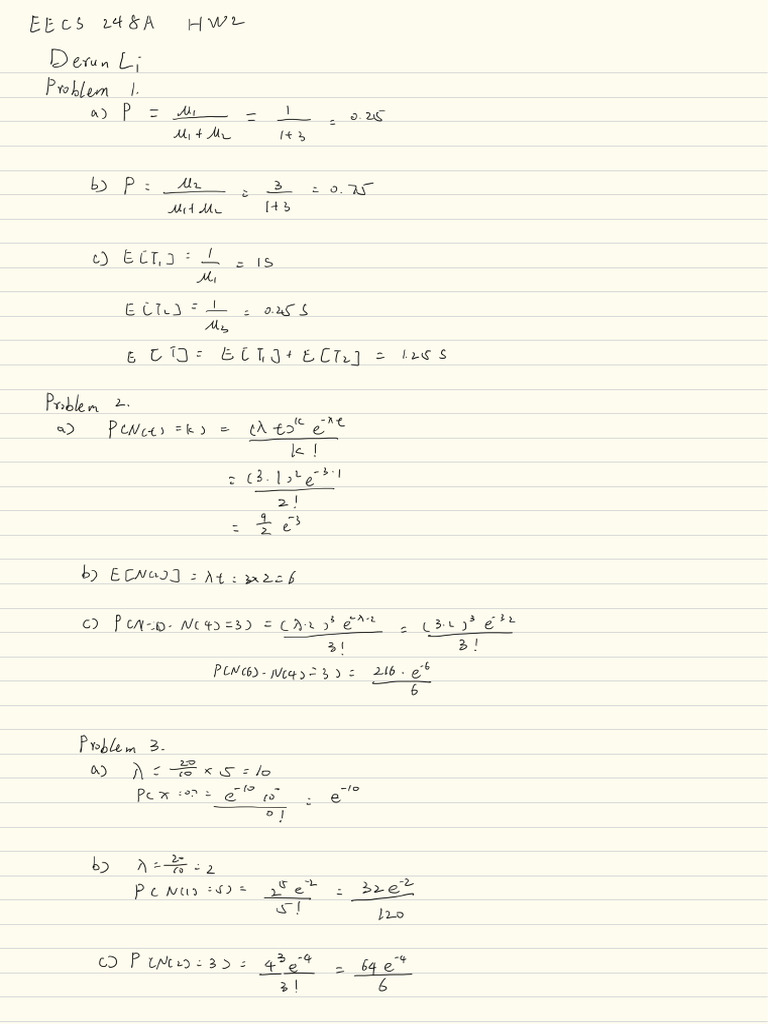 EECS 248A HW2
Derun Li
Problem 1.
a) P = μ₁/(μ₁+μ₂) = 1/(1+3) = 0.25
b) P = μ₂/(μ₁+μ₂) = 3/(1+3) = 0.75
c) E[T₁] = 1/μ₁ = 1s
E[T₂] = 1/μ₃ = 0.25 s
E[T] = E[T₁] + E[T₂] = 1.25 s
Problem 2.
a) P(N(t) = k) = (λt)^k e^(-λt) / k!
= (3·1)² e^(-3·1) / 2!
= 9/2 e^(-3)
b) E[N(2)] = λt = 3×2 = 6
c) N(4) = 3) = (λ·2)³ e^(-λ·2) / 3! = (3·2)³ e^(-3·2) / 3!
P(N(6) - N(4) = 3) = 216·e^(-6) / 6
Problem 3.
a) λ = 20/10 × 5 = 10
P(X = 0) = e^(-10) 10^0 / 0! = e^(-10)
b) λ = 20/10 = 2
P(N(1) = 5) = 2^5 e^(-2) / 5! = 32e^(-2) / 120
c) P(N(2) = 3) = 4³e^(-4) / 3! = 64e^(-4) / 6